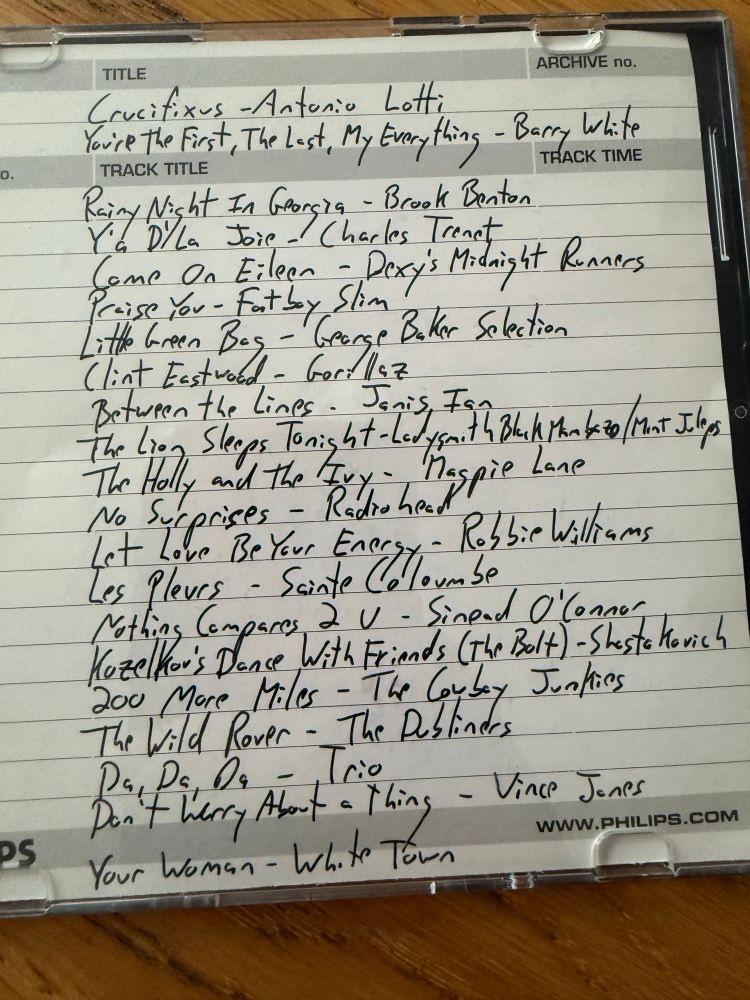 TITLE
ARCHIVE no.
Crucifixus - Antonio Lotti
You're The First, The Last, My Everything - Barry White
o.
TRACK TITLE
TRACK TIME
Rainy Night In Georgia - Brook Benton
Y'a D'La Joie - Charles Trenet
Come On Eileen - Dexy's Midnight Runners
Praise You - Fatboy Slim
Little Green Bag - George Baker Selection
Clint Eastwood - Gorillaz
Between the Lines - Janis Ian
The Lion Sleeps Tonight - Ladysmith Black Mambazo/Mint Juleps
The Holly and the Ivy - Magpie Lane
No Surprises - Radiohead
Let Love Be Your Energy - Robbie Williams
Les Pleurs - Sainte Colloumbe
Nothing Compares 2 U - Sinead O'Connor
Kozelkov's Dance With Friends (The Bolt) - Shostakovich
200 More Miles - The Cowboy Junkies
The Wild Rover - The Dubliners
Da, Da, Da - Trio
Don't Worry About a Thing - Vince Jones
WWW.PHILIPS.COM
PS
Your Woman - White Town